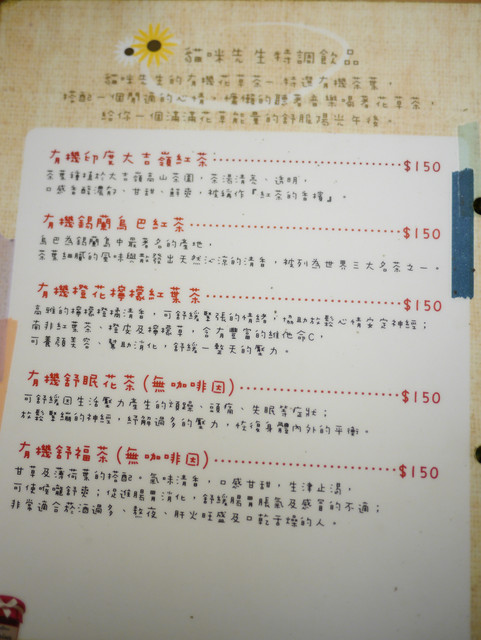 貓咪先生特調飲品
貓咪先生的有機花草茶－特選有機茶葉，
搭配一個開適的心情，慵懶的聽著音樂喝著花草茶，
給你一個滿滿花草能量的舒服陽光午後。
有機印度大吉嶺紅茶……………………$150
茶葉種植於大吉嶺高山茶園，茶湯清亮、透明，
口感香醇濃郁、甘甜、鮮爽，被稱作『紅茶的香檳』。
有機錫蘭烏巴紅茶……………………$150
烏巴為錫蘭島中最著名的產地，
茶葉細膩的風味與散發出天然沁涼的清香，被列為世界三大名茶之一。
有機橙花檸檬紅葉茶……………………$150
高雅的檸檬橙橘清香，可舒緩緊張的情緒，協助放鬆心情安定神經；
南非紅葉茶、橙皮及檸檬草，含有豐富的維他命C，
可養顏美容、幫助消化，舒緩一整天的壓力。
有機舒眠花茶(無咖啡因)……………………$150
可舒緩因生活壓力產生的煩躁、頭痛、失眠等症狀；
放鬆緊繃的神經，紓解過多的壓力，恢復身體內外的平衡。
有機舒福茶(無咖啡因)……………………$150
甘草及薄荷葉的搭配。氣味清香，口感甘甜，生津止渴，
可使喉嚨舒爽；促進腸胃消化，舒緩腸胃脹氣及感冒的不適；
非常適合菸酒過多、熬夜、肝火旺盛及口乾舌燥的人。